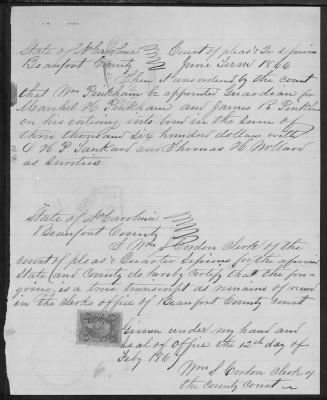 State of N Carolina Court of pleas & Qr Sessions
Beaufort County June Term 1866
Then it was ordered by the court
that Wm Pinkham be appointed Guardian for
H Pinkham and James R Pinkham
on his entering into bond in the sum of
three thousand six hundred dollars with
H P Tankard and Thomas H
as Sureties
State of N Carolina
Beaufort County
I Wm S Cordon clerk of the
court of pleas & Quarter Sessions for the
State and County do hereby certify that the fore
going is a true transcript as remains of record
in the Clerks office of Beaufort County court
Given under my hand and
seal of office the 12th day of
Feby 1867
Wm S Cordon Clerk of
the County Court